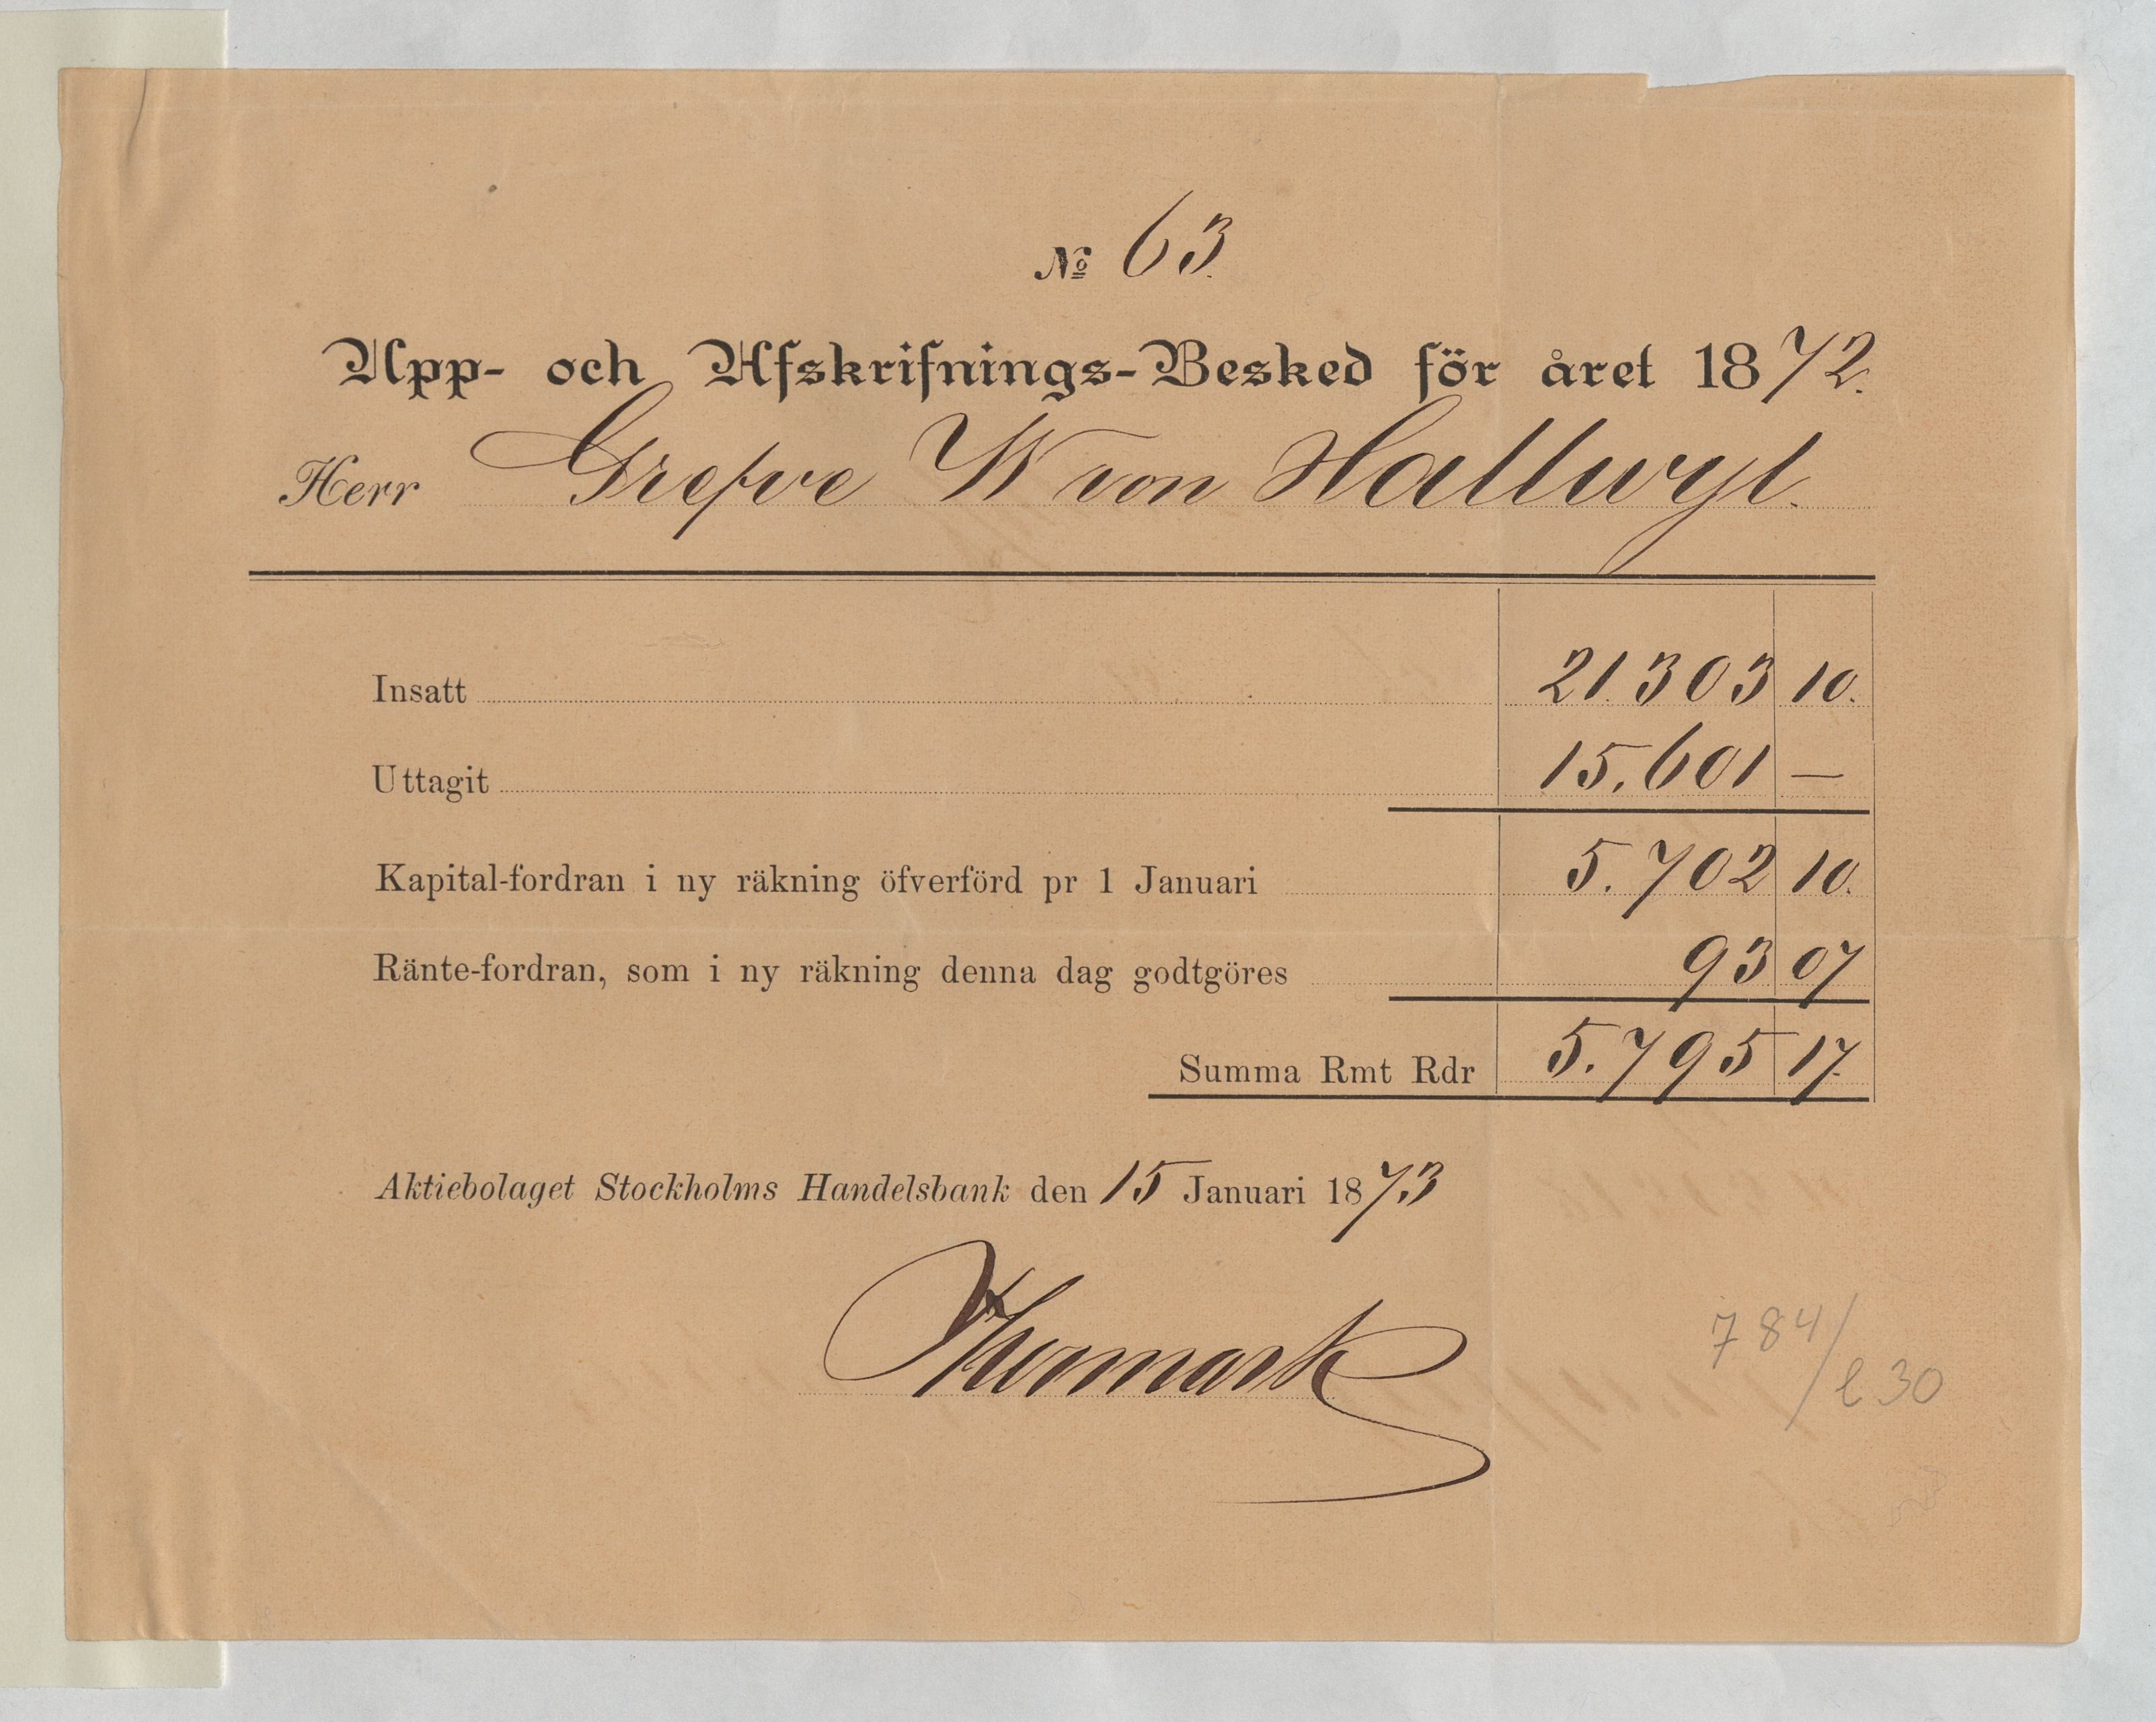 № 63.
Upp- och Afskrifnings-Besked för året 1872.
Herr Grefve W von Hallwyl.
Insatt 21.303 10.
Uttagit 15.601 —
Kapital-fordran i ny räkning öfverförd pr 1 Januari 5.702 10.
Ränte-fordran, som i ny räkning denna dag godtgöres 93 07
Summa Rmt Rdr 5.795 17.
Aktiebolaget Stockholms Handelsbank den 15 Januari 1873
784/
l 30